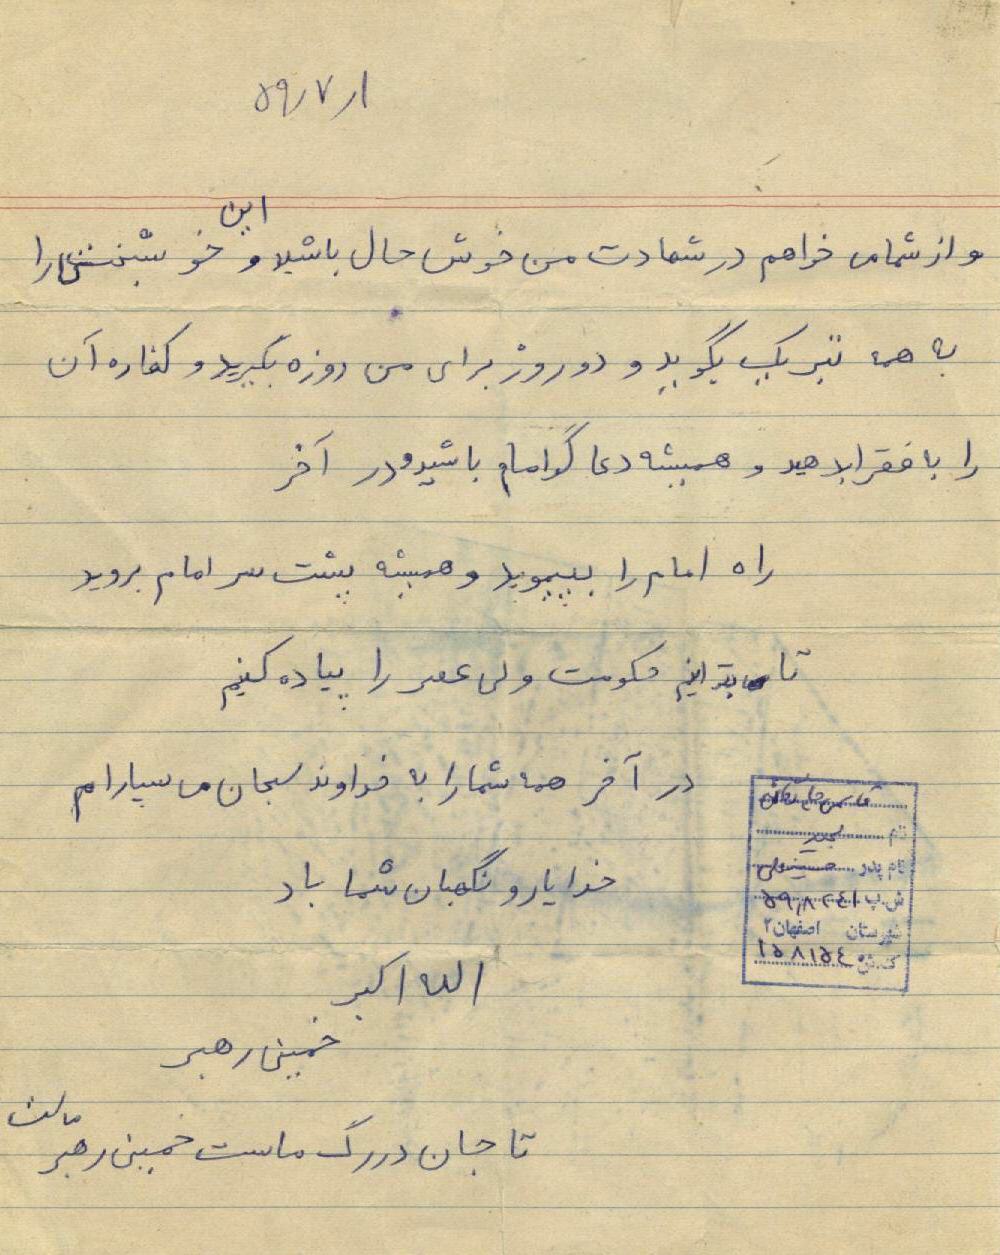 ۵۹٫۷٫۱
و از شما می خواهم در شهادت من خوش حال باشید و این خوشبختی را
به همه تبریک بگویید و دو روز برای من روزه بگیرید و کفاره آن
را به فقرا بدهید و همیشه دعا گو امام باشید و در آخر
راه امام را بپیمویید و همیشه پشت سر امام بروید
تا بتوانیم حکومت ولی عصر را پیاده کنیم
در آخر همه شما را به خداوند سبحان می سپارام
خدا یار و نگهبان شما باد
الله اکبر
خمینی رهبر
تا جان در رگ ماست خمینی رهبر ماست
نام
نام پدر حسینعلی
ش.پ ۵۹٫۸۲۴۱
شهرستان اصفهان۲
ک.ش ۱۵۸۱۵۴